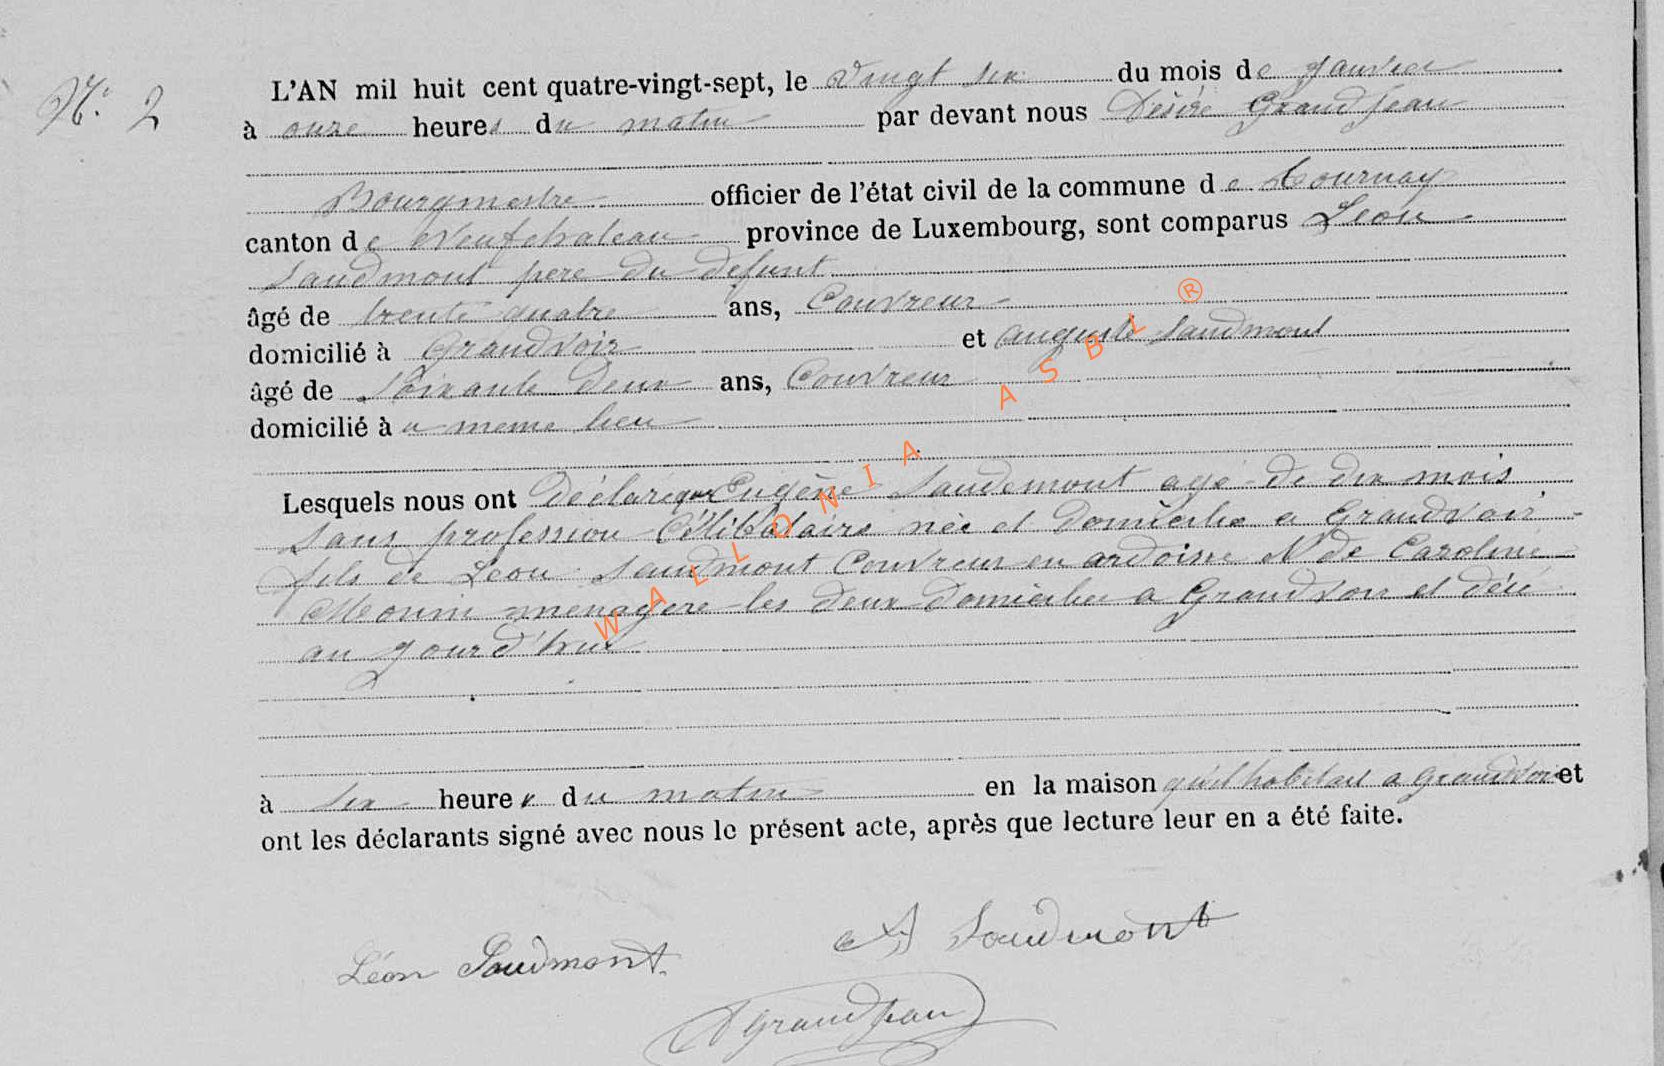 N° 2
L'AN mil huit cent quatre-vingt-sept, le vingt six du mois de janvier
à onze heures du matin par devant nous Désiré Grandjean
Bourgmestre officier de l'état civil de la commune de Tournay
canton de Neufchateau province de Luxembourg, sont comparus Léon
Saudmont père du defunt
âgé de trente quatre ans, Couvreur
domicilié à Grandvoir et auguste Saudmont
âgé de Soixante deux ans, Couvreur
domicilié à u meme lieu
Lesquels nous ont déclaré que Eugène Saudemont agé de dix mois
Sans profession Célibataire née et domicilie a Grandvoir
fils de Léon Saudmont Couvreur en ardoise & de Caroline
menagere les deux domicilie a Grandvoir et décé
au jourd'hui
à six heures du matin en la maison qu'il habitait a Grandvoir et
ont les déclarants signé avec nous le présent acte, après que lecture leur en a été faite.
Léon Saudmont. A Saudmont
D Grandjean
WALLONIA ASBL ®